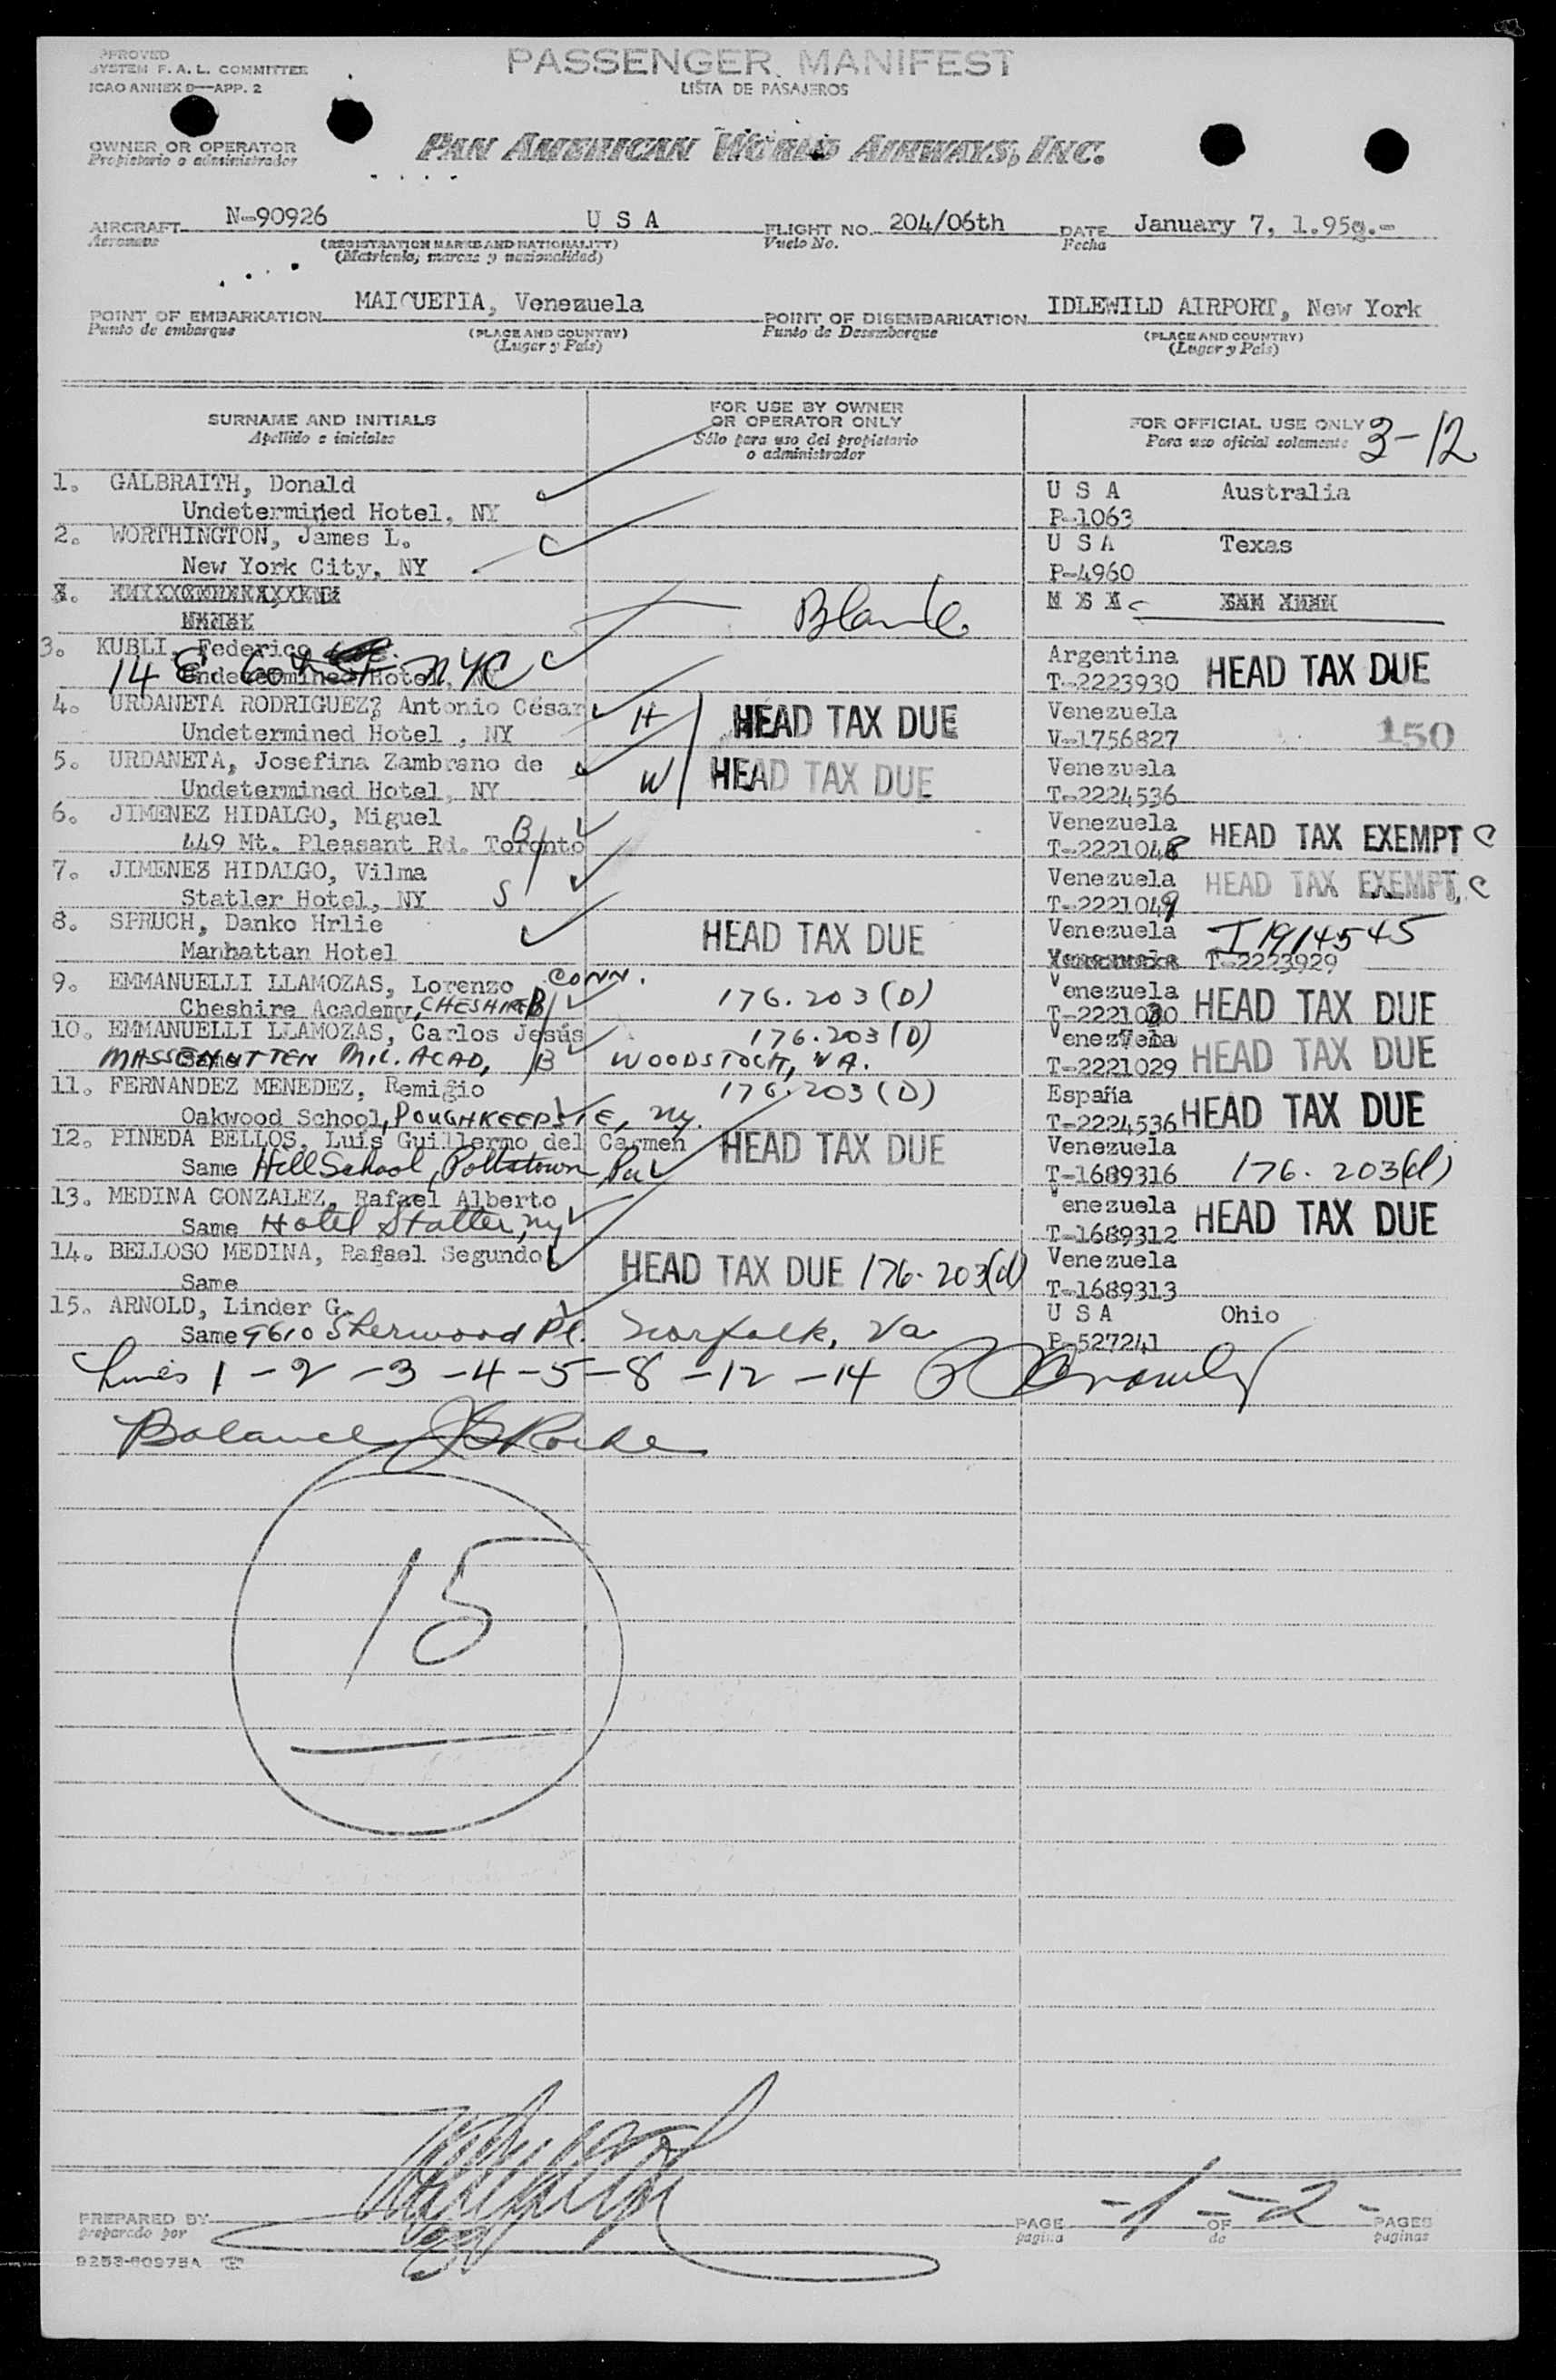 APPROVED
SYSTEM F. A. L. COMMITTEE
ICAO ANNEX 9—APP. 2
PASSENGER MANIFEST
LISTA DE PASAJEROS
OWNER OR OPERATOR
Propietario o administrador
PAN AMERICAN WORLD AIRWAYS, INC.
AIRCRAFT N-90926 U S A FLIGHT NO. 204/06th DATE January 7, 1.95
Aeronave (REGISTRATION MARKS AND NATIONALITY) Vuelo No. Fecha
(Matrícula, marcas y nacionalidad)
POINT OF EMBARKATION MAIQUETIA, Venezuela POINT OF DISEMBARKATION IDLEWILD AIRPORT, New York
Punto de embarque (PLACE AND COUNTRY) Punto de Desembarque (PLACE AND COUNTRY)
(Lugar y País) (Lugar y País)
SURNAME AND INITIALS
Apellido e iniciales
FOR USE BY OWNER
OR OPERATOR ONLY
Sólo para uso del propietario
o administrador
FOR OFFICIAL USE ONLY 3-12
Para uso oficial solamente
1. GALBRAITH, Donald U S A Australia
Undetermined Hotel, NY P-1063
2. WORTHINGTON, James L. U S A Texas
New York City, NY P-4960
Blank
3. KUBLI, Federico Argentina HEAD TAX DUE
14 E 60th St NYC Undetermined Hotel, NY T-2223930
4. URDANETA RODRIGUEZ, Antonio César H HEAD TAX DUE Venezuela
Undetermined Hotel , NY V-1756827 150
5. URDANETA, Josefina Zambrano de W HEAD TAX DUE Venezuela
Undetermined Hotel, NY T-2224536
6. JIMENEZ HIDALGO, Miguel B Venezuela HEAD TAX EXEMPT C
449 Mt. Pleasant Rd. Toronto T-2221048
7. JIMENEZ HIDALGO, Vilma S Venezuela HEAD TAX EXEMPT, C
Statler Hotel, NY T-2221049
8. SPRUCH, Danko Hrlie HEAD TAX DUE Venezuela I 1914545
Manhattan Hotel T-2223929
9. EMMANUELLI LLAMOZAS, Lorenzo CONN. 176.203(D) Venezuela HEAD TAX DUE
Cheshire Academy, CHESHIRE B T-2221030
10. EMMANUELLI LLAMOZAS, Carlos Jesús 176.203(D) Venezuela HEAD TAX DUE
Same MASSENUTTEN MIL. ACAD, B WOODSTOCK, VA. T-2221029
11. FERNANDEZ MENEDEZ, Remigio 176.203(D) España HEAD TAX DUE
Oakwood School, POUGHKEEPSIE, NY. T-2224536
12. PINEDA BELLOS, Luis Guillermo del Carmen HEAD TAX DUE Venezuela
Same Hill School, Pottstown Pa T-1689316 176.203(d)
13. MEDINA GONZALEZ, Rafael Alberto Venezuela HEAD TAX DUE
Same Hotel Statler, NY T-1689312
14. BELLOSO MEDINA, Rafael Segundo HEAD TAX DUE 176.203(d) Venezuela
Same T-1689313
15. ARNOLD, Linder G. U S A Ohio
Same 9610 Sherwood Pl. Norfolk, Va. P-527241
Lines 1-2-3-4-5-8-12-14
Balance
15
PREPARED BY PAGE -1- OF -2- PAGES
preparado por página de páginas
9253-60975A